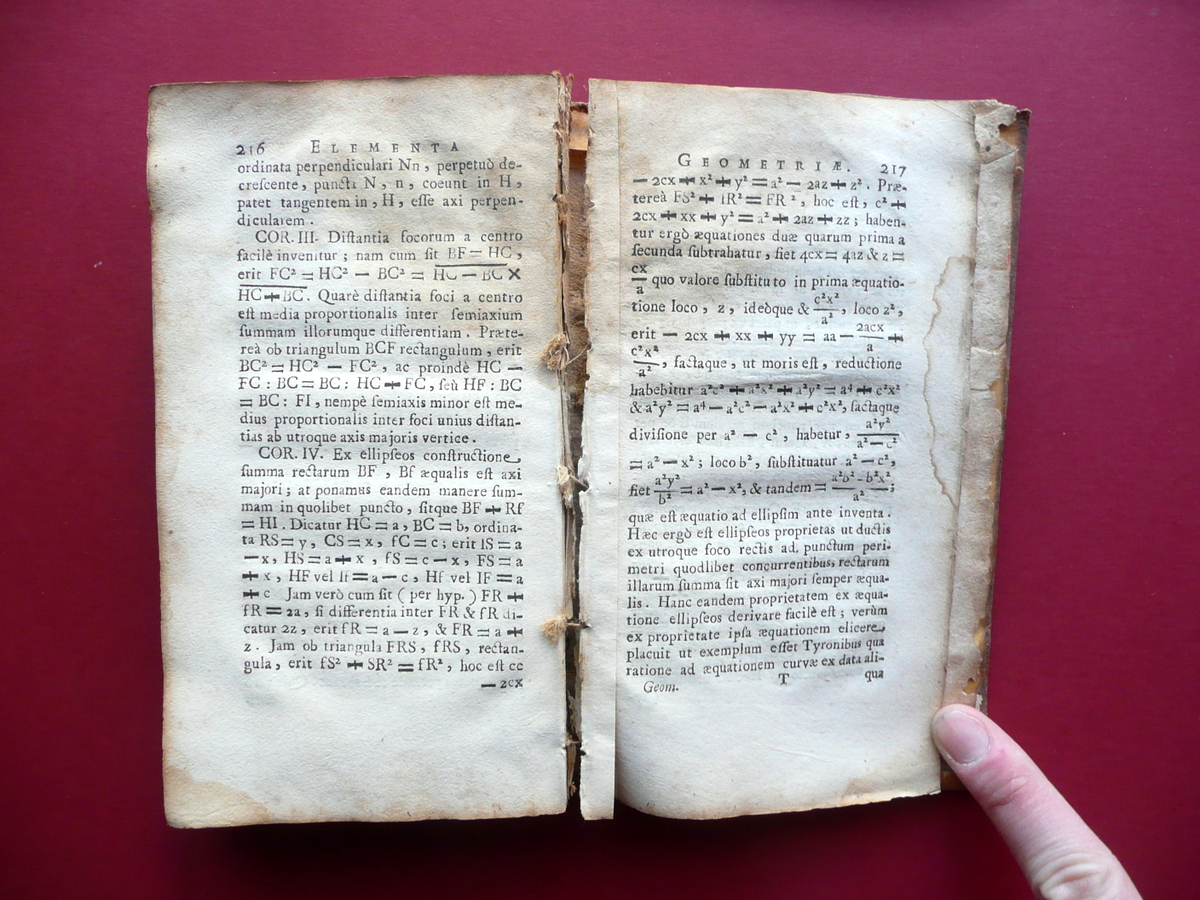 216 ELEMENTA
ordinata perpendiculari Nn, perpetuò de-
creſcente, puncti N, n, coeunt in H,
patet tangentem in, H, eſſe axi perpen-
dicularem.
COR. III. Diſtantia focorum a centro
facilè invenitur; nam cum ſit BF = HC,
erit FC² = HC² — BC² = HC — BC ×
HC + BC. Quarè diſtantia foci a centro
eſt media proportionalis inter ſemiaxium
ſummam illorumque differentiam. Præte-
reà ob triangulum BCF rectangulum, erit
BC² = HC² — FC², ac proindè HC —
FC : BC = BC : HC + FC, ſeù HF : BC
= BC : FI, nempè ſemiaxis minor eſt me-
dius proportionalis inter foci unius diſtan-
tias ab utroque axis majoris vertice.
COR. IV. Ex ellipſeos conſtructione,
ſumma rectarum BF, Bf æqualis eſt axi
majori; at ponamus eandem manere ſum-
mam in quolibet puncto, ſitque BF + Rf
= HI. Dicatur HC = a, BC = b, ordina-
ta RS = y, CS = x, fC = c; erit IS = a
— x, HS = a + x, fS = c — x, FS = a
+ x, HF vel If = a — c, Hf vel IF = a
+ c Jam verò cum ſit ( per hyp. ) FR +
fR = 2a, ſi differentia inter FR & fR di-
catur 2z, erit fR = a — z, & FR = a +
z. Jam ob triangula FRS, fRS, rectan-
gula, erit fS² + SR² = fR², hoc eſt cc
— 2cx
GEOMETRIÆ. 217
— 2cx + x² + y² = a² — 2az + z². Præ-
tereà FS² + IR² = FR², hoc eſt, c² +
2cx + xx + y² = a² + 2az + zz; haben-
tur ergò æquationes duæ quarum prima a
ſecunda ſubtrahatur, fiet 4cx = 4az & z =
cx/a quo valore ſubſtituto in prima æquatio-
tione loco, z, ideòque & c²x²/a², loco z²,
erit — 2cx + xx + yy = aa — 2acx/a +
c²x²/a², factaque, ut moris eſt, reductione
habebitur a²c² + a²x² + a²y² = a⁴ + c²x²
& a²y² = a⁴ — a²c² — a²x² + c²x², factaque
diviſione per a² — c², habetur, a²y²/a² — c²
= a² — x²; loco b², ſubſtituatur a² — c²,
fiet a²y²/b² = a² — x², & tandem = a²b² - b²x²/a²;
quæ eſt æquatio ad ellipſim ante inventa.
Hæc ergò eſt ellipſeos proprietas ut ductis
ex utroque foco rectis ad, punctum peri-
metri quodlibet concurrentibus, rectarum
illarum ſumma ſit axi majori ſemper æqua-
lis. Hanc eandem proprietatem ex æqua-
tione ellipſeos derivare facilè eſt; verùm
ex proprietate ipſa æquationem elicere,
placuit ut exemplum eſſet Tyronibus qua
ratione ad æquationem curvæ ex data ali-
Geom. T qua